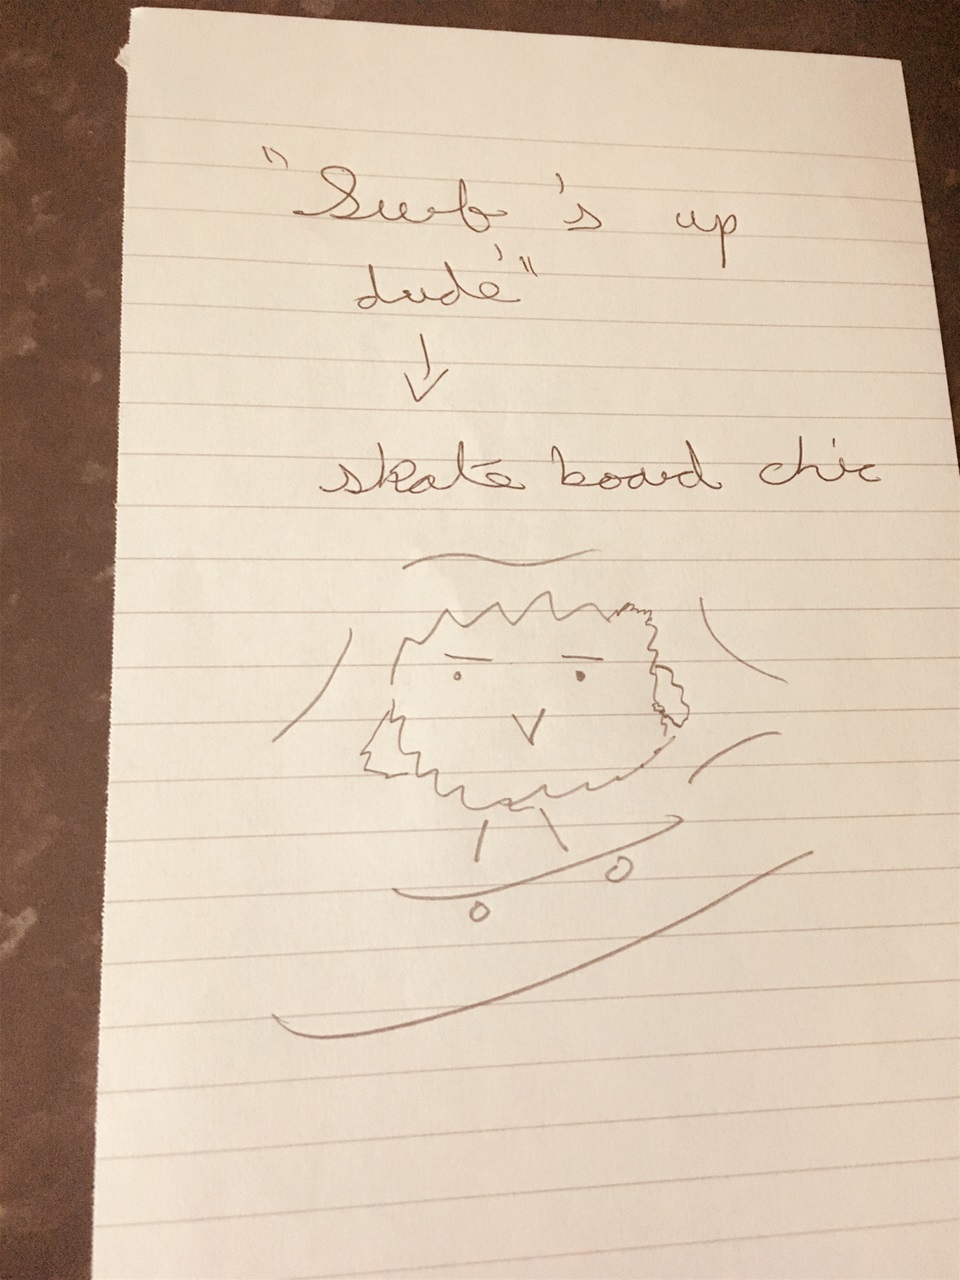 "Surf's up
dude'"
skate board chic